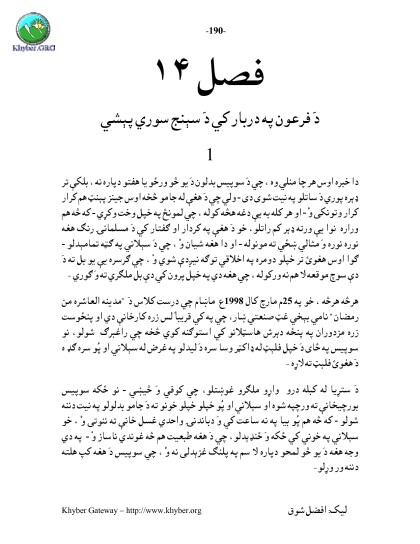 -190-
Khyber.ORG
فصل ۱۴
دَ فرعون په دربار کي دَ سېنج سوري پېشي
1
دا خبره اوس هر چا منلې وه ، چي دَ سوېپس بدلون دَ يو څو ورځو يا هفتو دپاره نه ، بلکې تر
ډېره پوري دَ ساتلو په نيت شوی دی - ولې چي دَ هغې له جامو څخه اوس جينز پېنټ هم کرار
کرار وتونکی وُ - او هر کله به يې دغه هڅه کوله ، چي لمونځ په خپل وخت وکړي - که څه هم
وراره نوا يې ورته ډېر کم راتلو ، خو دَ هغې په کردار او ګفتار کي دَ مسلمانۍ رنګ هغه
نوره نوره وَ مثالي ښځي ته مونوله - او دا هغه شيان وُ ، چي دَ سېلاني په ګټه تمامېدلو -
ګوا اوس هغوئ تر خپلو دومره په اخلاقي توګه نيږدې شوي وُ ، چي ګرسره يې يو بل ته دَ
دې سوچ موقعه لا هم نه ورکوله ، چي هغه دي په خپل پرون کي دې بل ملګري ته وَ ګوري -
هرڅه هرڅه ، خو په 25م مارچ کال 1998ع ماښام چي درست کلاس دَ "مدينه العاشره من
رمضان" نامي يېخي غټ صنعتي ښار ، چي په کې قريباً لس زره کارخانې دي او پنځوست
زره مزدوران په پنځه دېرش هاسټلانو کي استوګنه کوي څخه چي راغبرګ شولو ، نو
سوېپس په ځای دَ خپل فلېټ له ډاکټر وسا سره دَ ليدلو په غرض له سېلاني او پُو سره ګډه
دَ هغوئ فلېټ ته لاړه -
دَ ستړيا له کبله درو واړو ملګرو غوښتلو ، چي کوفي وَ څيښي - نو ځکه سوېپس
بورچيخانې ته ورچپه شوه او سېلاني او پُو خپلو خپلو خونو ته دَ جامو بدلولو په نيت دننه
شول - که څه هم پُو بيا په نه ساعت کي وَ دباندنۍ واحدي غسل خانې ته ننوتی وُ ، خو
سېلاني په خونې کي ځکه وَ ځنډېدلو ، چي دَ هغه طبعيت هم څه غوندي ناساز وُ - په دې
وجه هغه دَ يو څو لمحو دپاره لا سم په پلنګ غزېدلی نه وُ ، چي سوېپس دَ هغه کپ هلته
دننه ور وړلو -
Khyber Gateway – http://www.khyber.org
ليک: افضل شوق